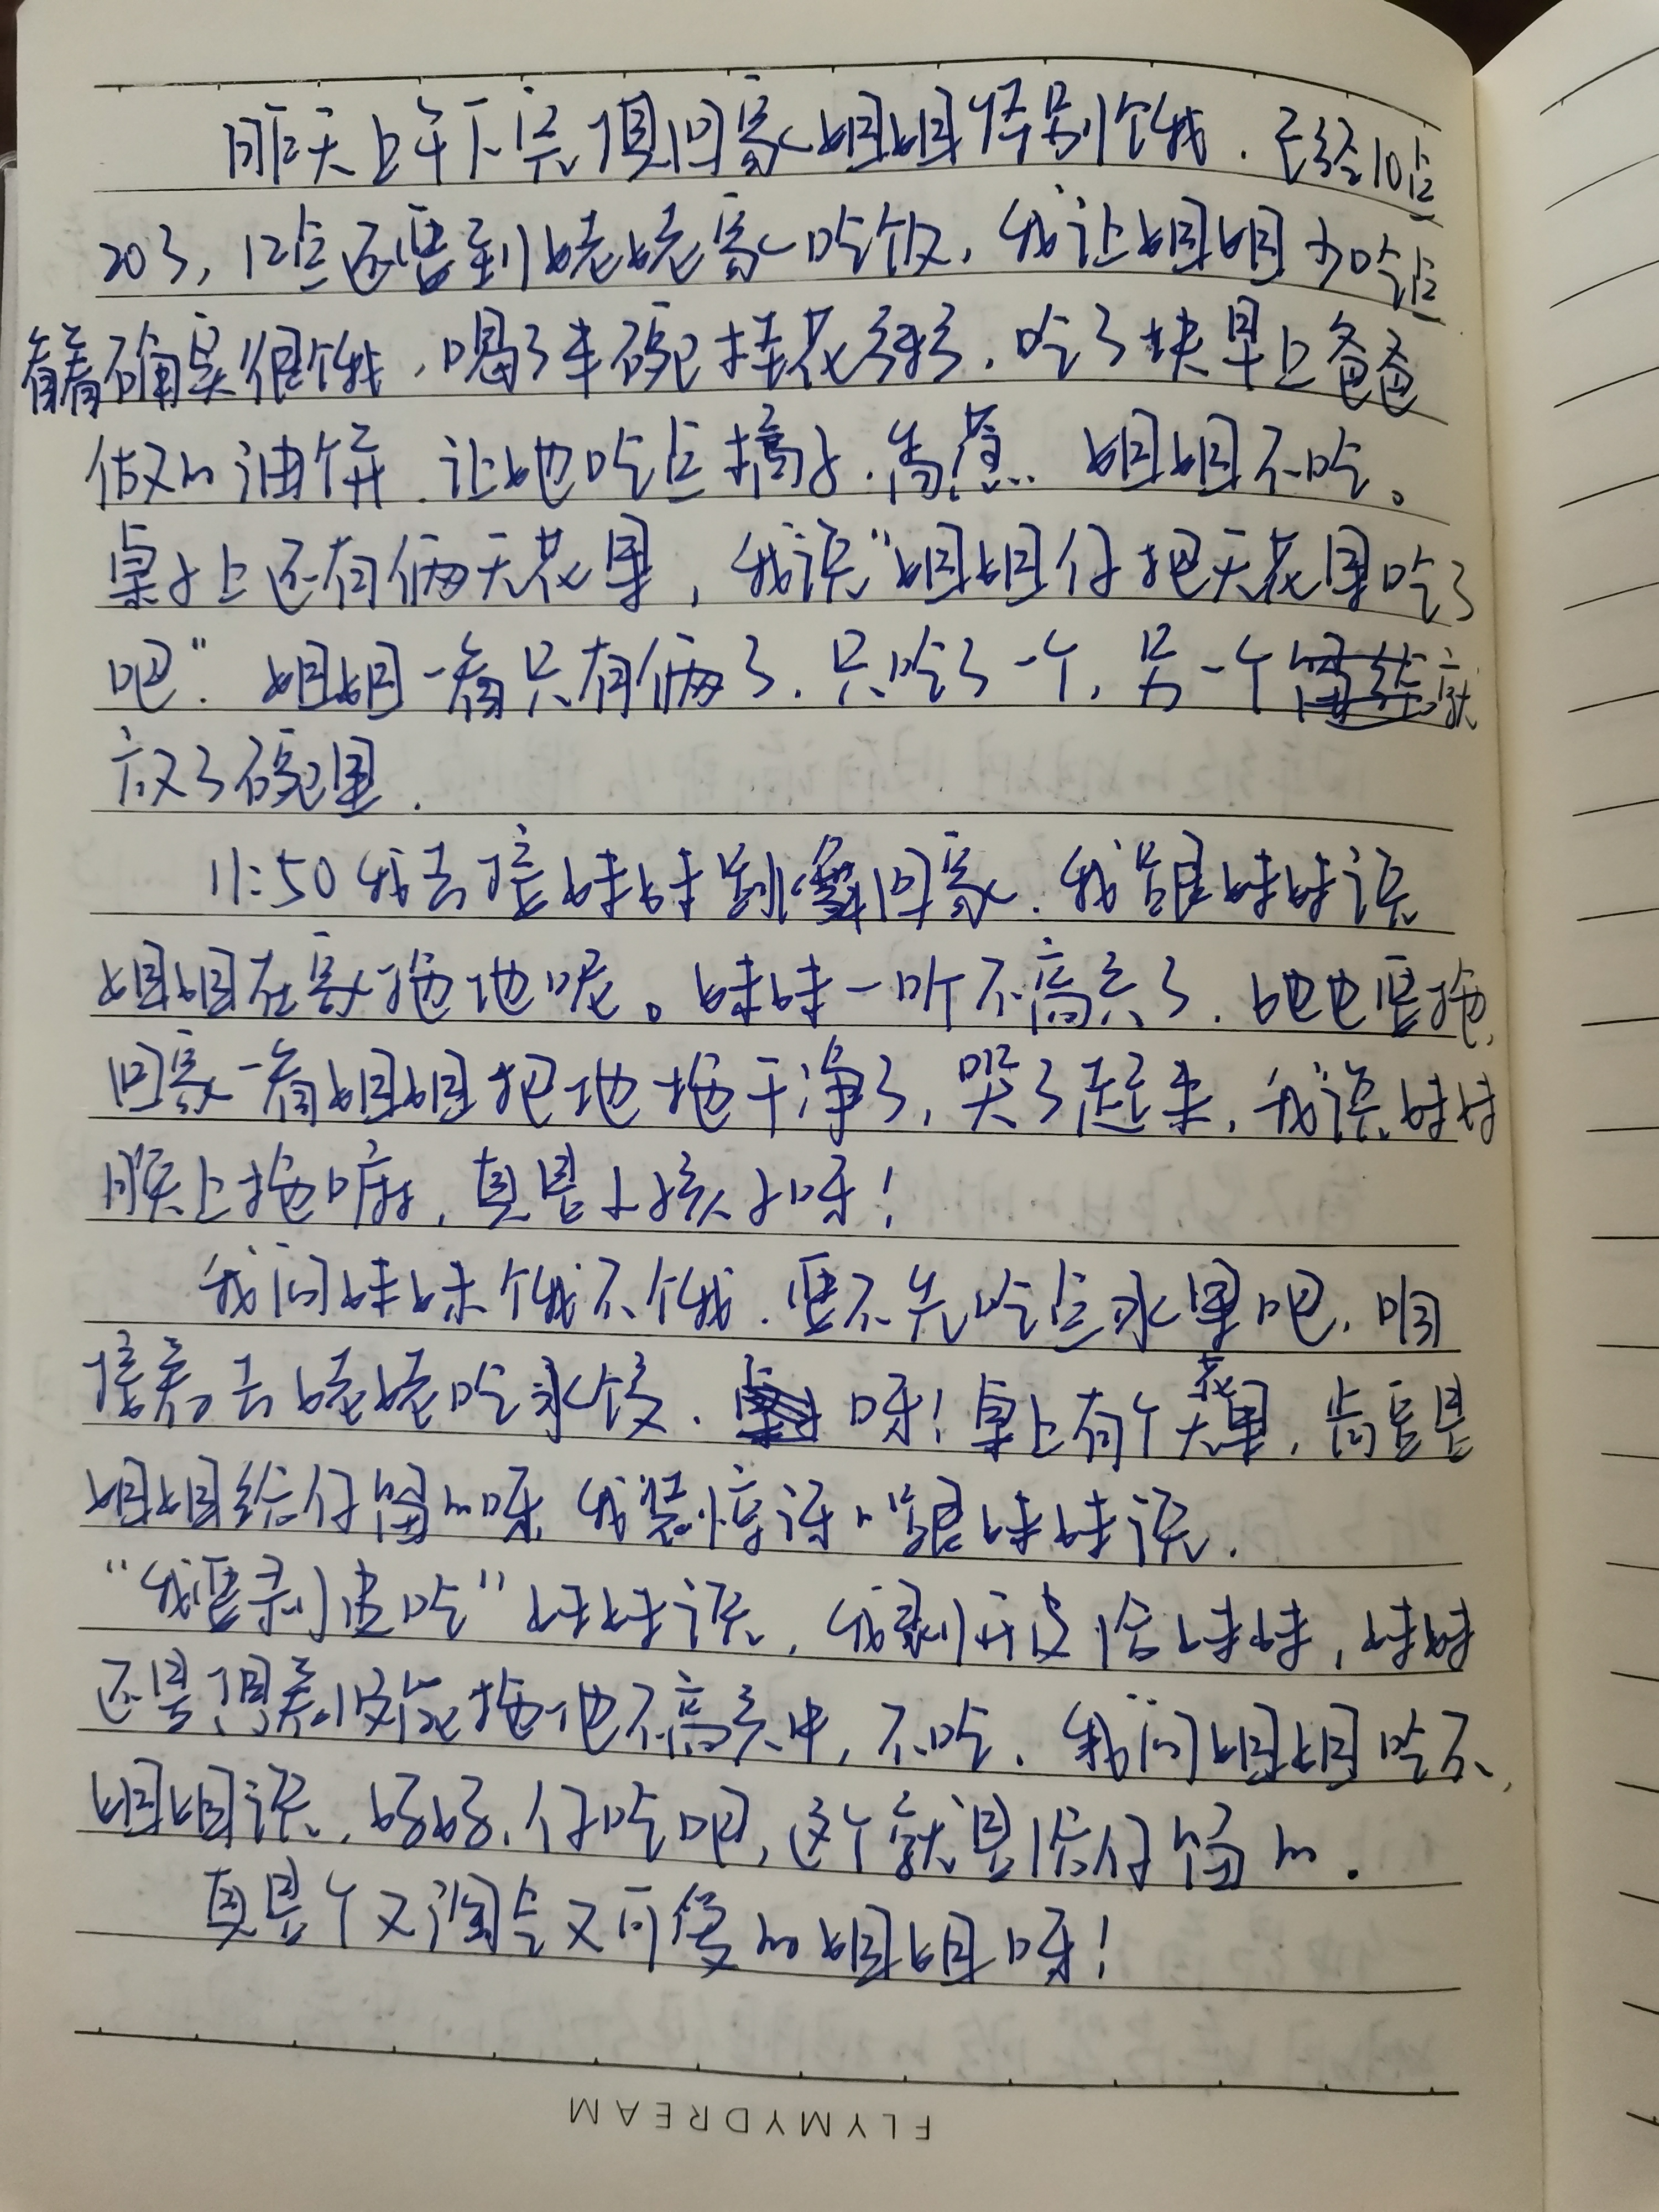 昨天上午下完课回家姐姐特别饿.已经10点
20了,12点还要到姥姥家吃饭,我让姐姐少吃点
看着确实很饿,喝了半碗桂花粥,吃了块早上爸爸
做的油饼.让她吃点橘子.香蕉..姐姐不吃。
桌子上还有俩无花果,我说“姐姐你把无花果吃了
吧”.姐姐一看只有俩了.只吃了一个,另一个就
放了碗里.
11:50我去接妹妹回家.我跟妹妹说
姐姐在家拖地呢。妹妹一听不高兴了.她也要拖,
回家一看姐姐把地拖干净了,哭了起来,我说妹妹
晚上拖嘛,真是小孩子呀!
我问妹妹饿不饿.要不先吃点水果吧,咱
接着去姥姥吃水饺.呀!桌上有个花果,肯定是
姐姐给你留的呀 我装惊讶的跟妹妹说.
“我要剥皮吃”妹妹说,我剥开皮给妹妹,妹妹
还是沉浸没能拖地不高兴中,不吃.我问姐姐吃不,
姐姐说,妈妈,你吃吧,这个就是给你留的.
真是个又淘气又可爱的姐姐呀!
FLYMYDREAM